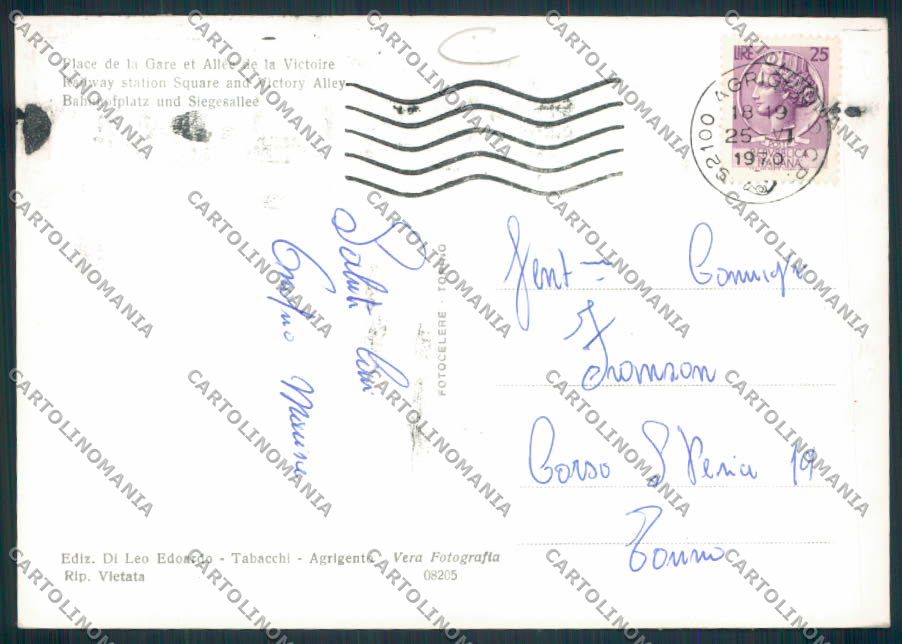 Place de la Gare et Allée de la Victoire
Railway station Square and Victory Alley
Bahnhofplatz und Siegesallee
LIRE 25
92100 AGRIGENTO
18-19
25 VI
1970
Saluti Cari
FOTOCELERE - TORINO
Gent
Corso S
19
Torino
Ediz. Di Leo Edoardo - Tabacchi - Agrigento - Vera Fotografia
Rip. Vietata
08205
CARTOLINOMANIA